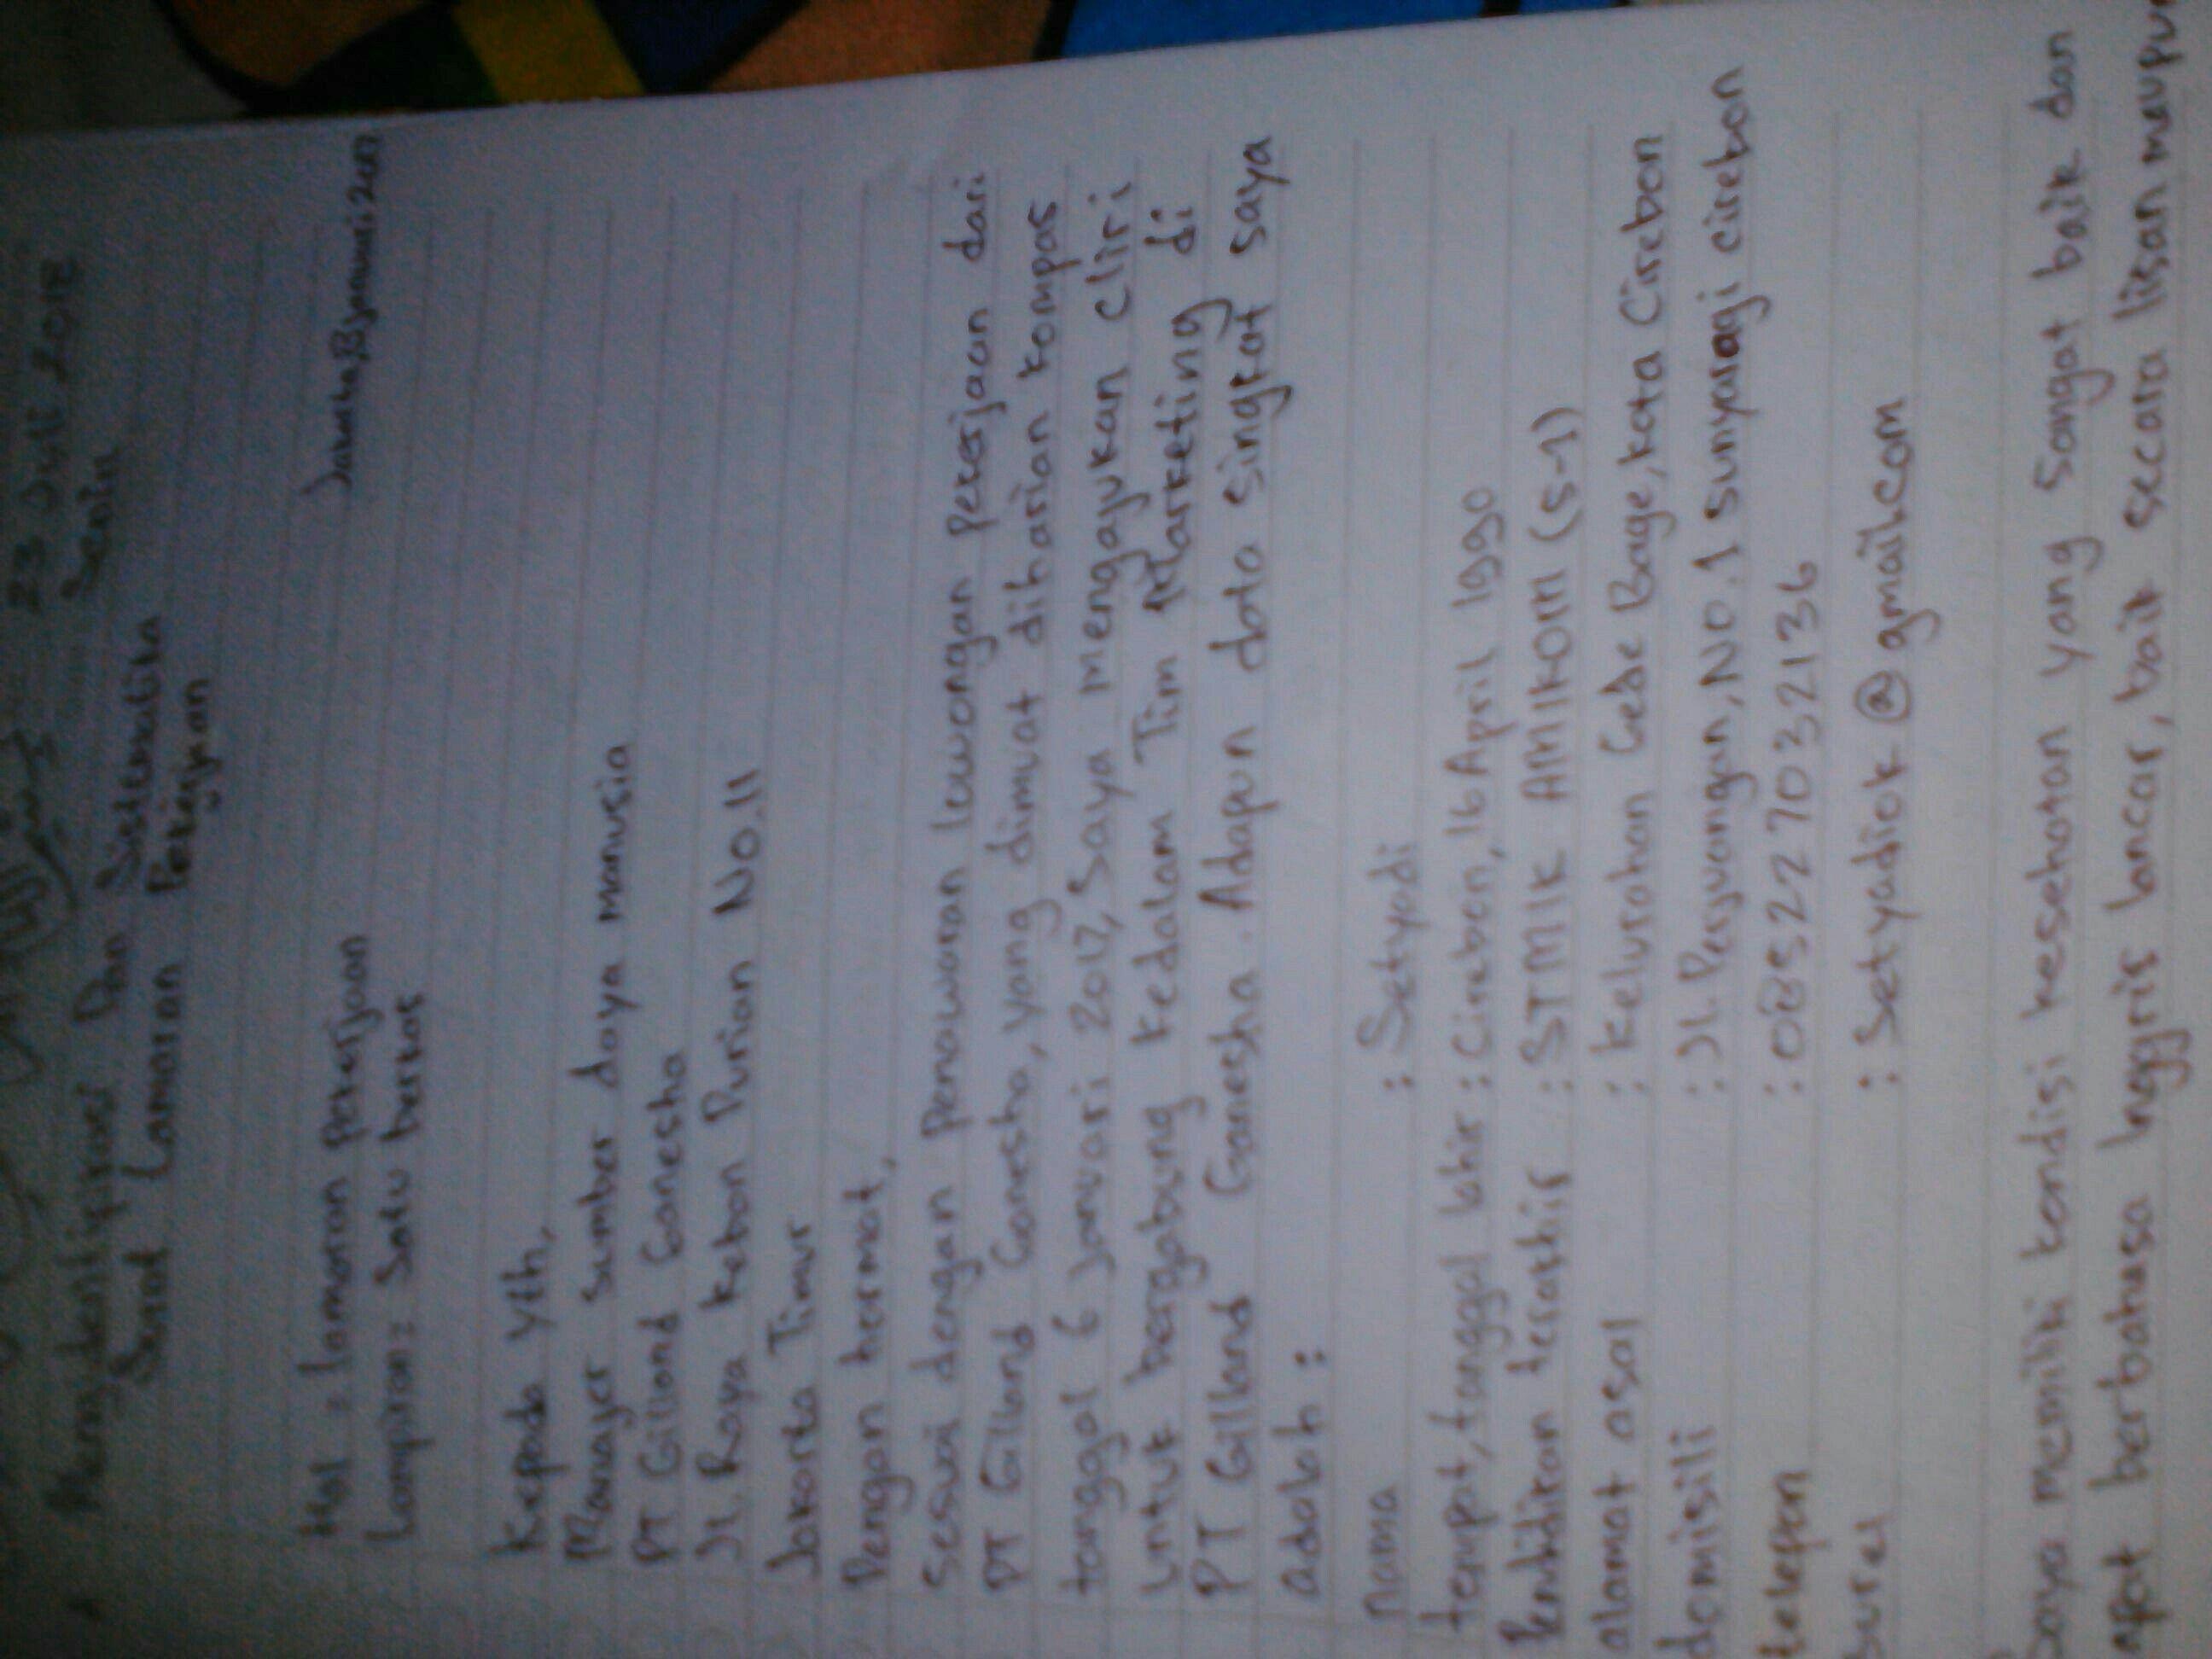 23 Juli 2018
Senin
Mengidentifikasi Dan Sistematika
Surat Lamaran Pekerjaan
Hal : Lamaran Pekerjaan
Lampiran: Satu berkas
Kepada Yth,
Manajer Sumber daya manusia
PT Gilland Ganesha
Jl. Raya Kebon Durian No.11
Jakarta Timur
Dengan hormat,
Sesuai dengan penawaran lowongan pekerjaan dari
PT Gilland Ganesha, yang dimuat diharian kompas
tanggal 6 januari 2017, Saya mengajukan cliri
Untuk bergabung kedalam Tim Marketing di
PT Gilland Ganesha. Adapun data singkat saya
adalah :
nama : Setyadi
tempat, tanggal lahir : Cirebon, 16 April 1990
Pendidikan terakhir : STMIK AMIKOM (S-1)
alamat asal : Kelurahan Gede Bage, kota Cirebon
domisili : Jl. Perjuangan, No.1 sunyaragi cirebon
telepon : 085227032136
surel : Setyadiok@gmail.com
Saya memiliki kondisi kesehatan yang Sangat baik dan
apat berbahasa Inggris lancar, baik secara lisan maupun